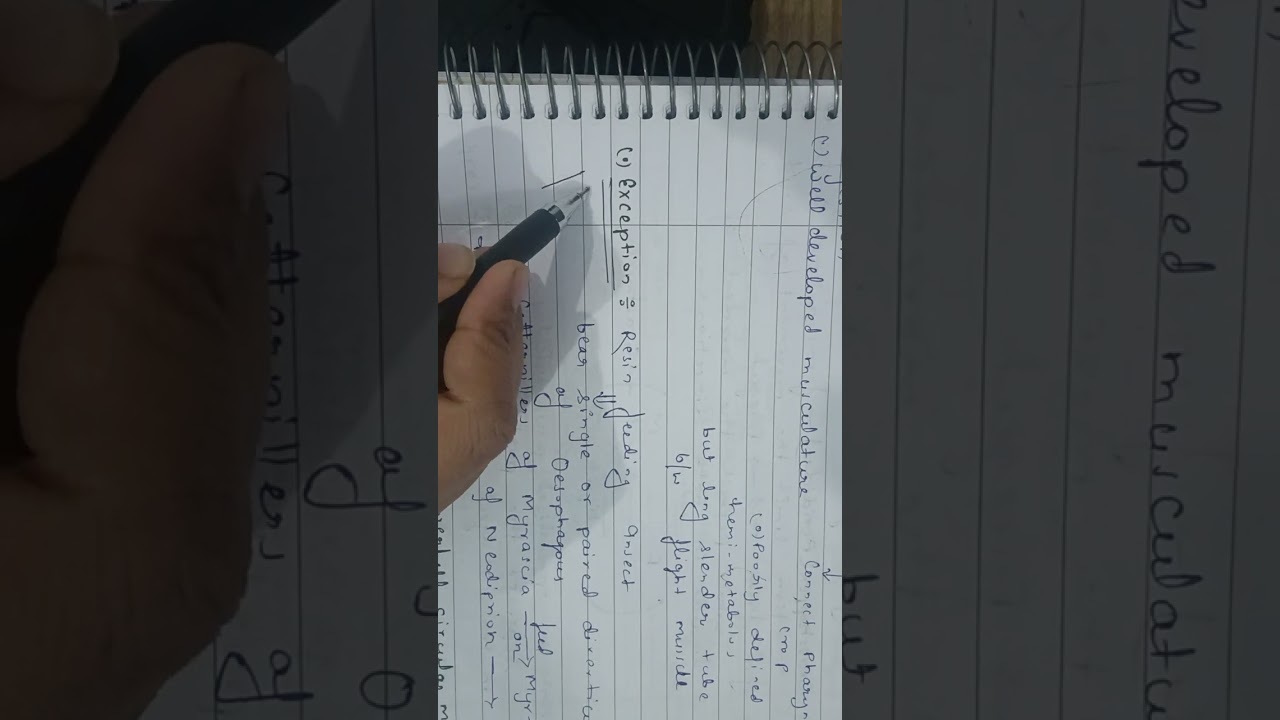 (•) Well developed musculature
Connect pharyn
crop
(o) Poorly defined
hemi-metabolus,
but long slender tube
b/w flight muscle
(•) Exception :- Resin feeding insect
bear single or paired divertic
of Oesophagous
of Myrascia feed on Myr
of Neodiprion →